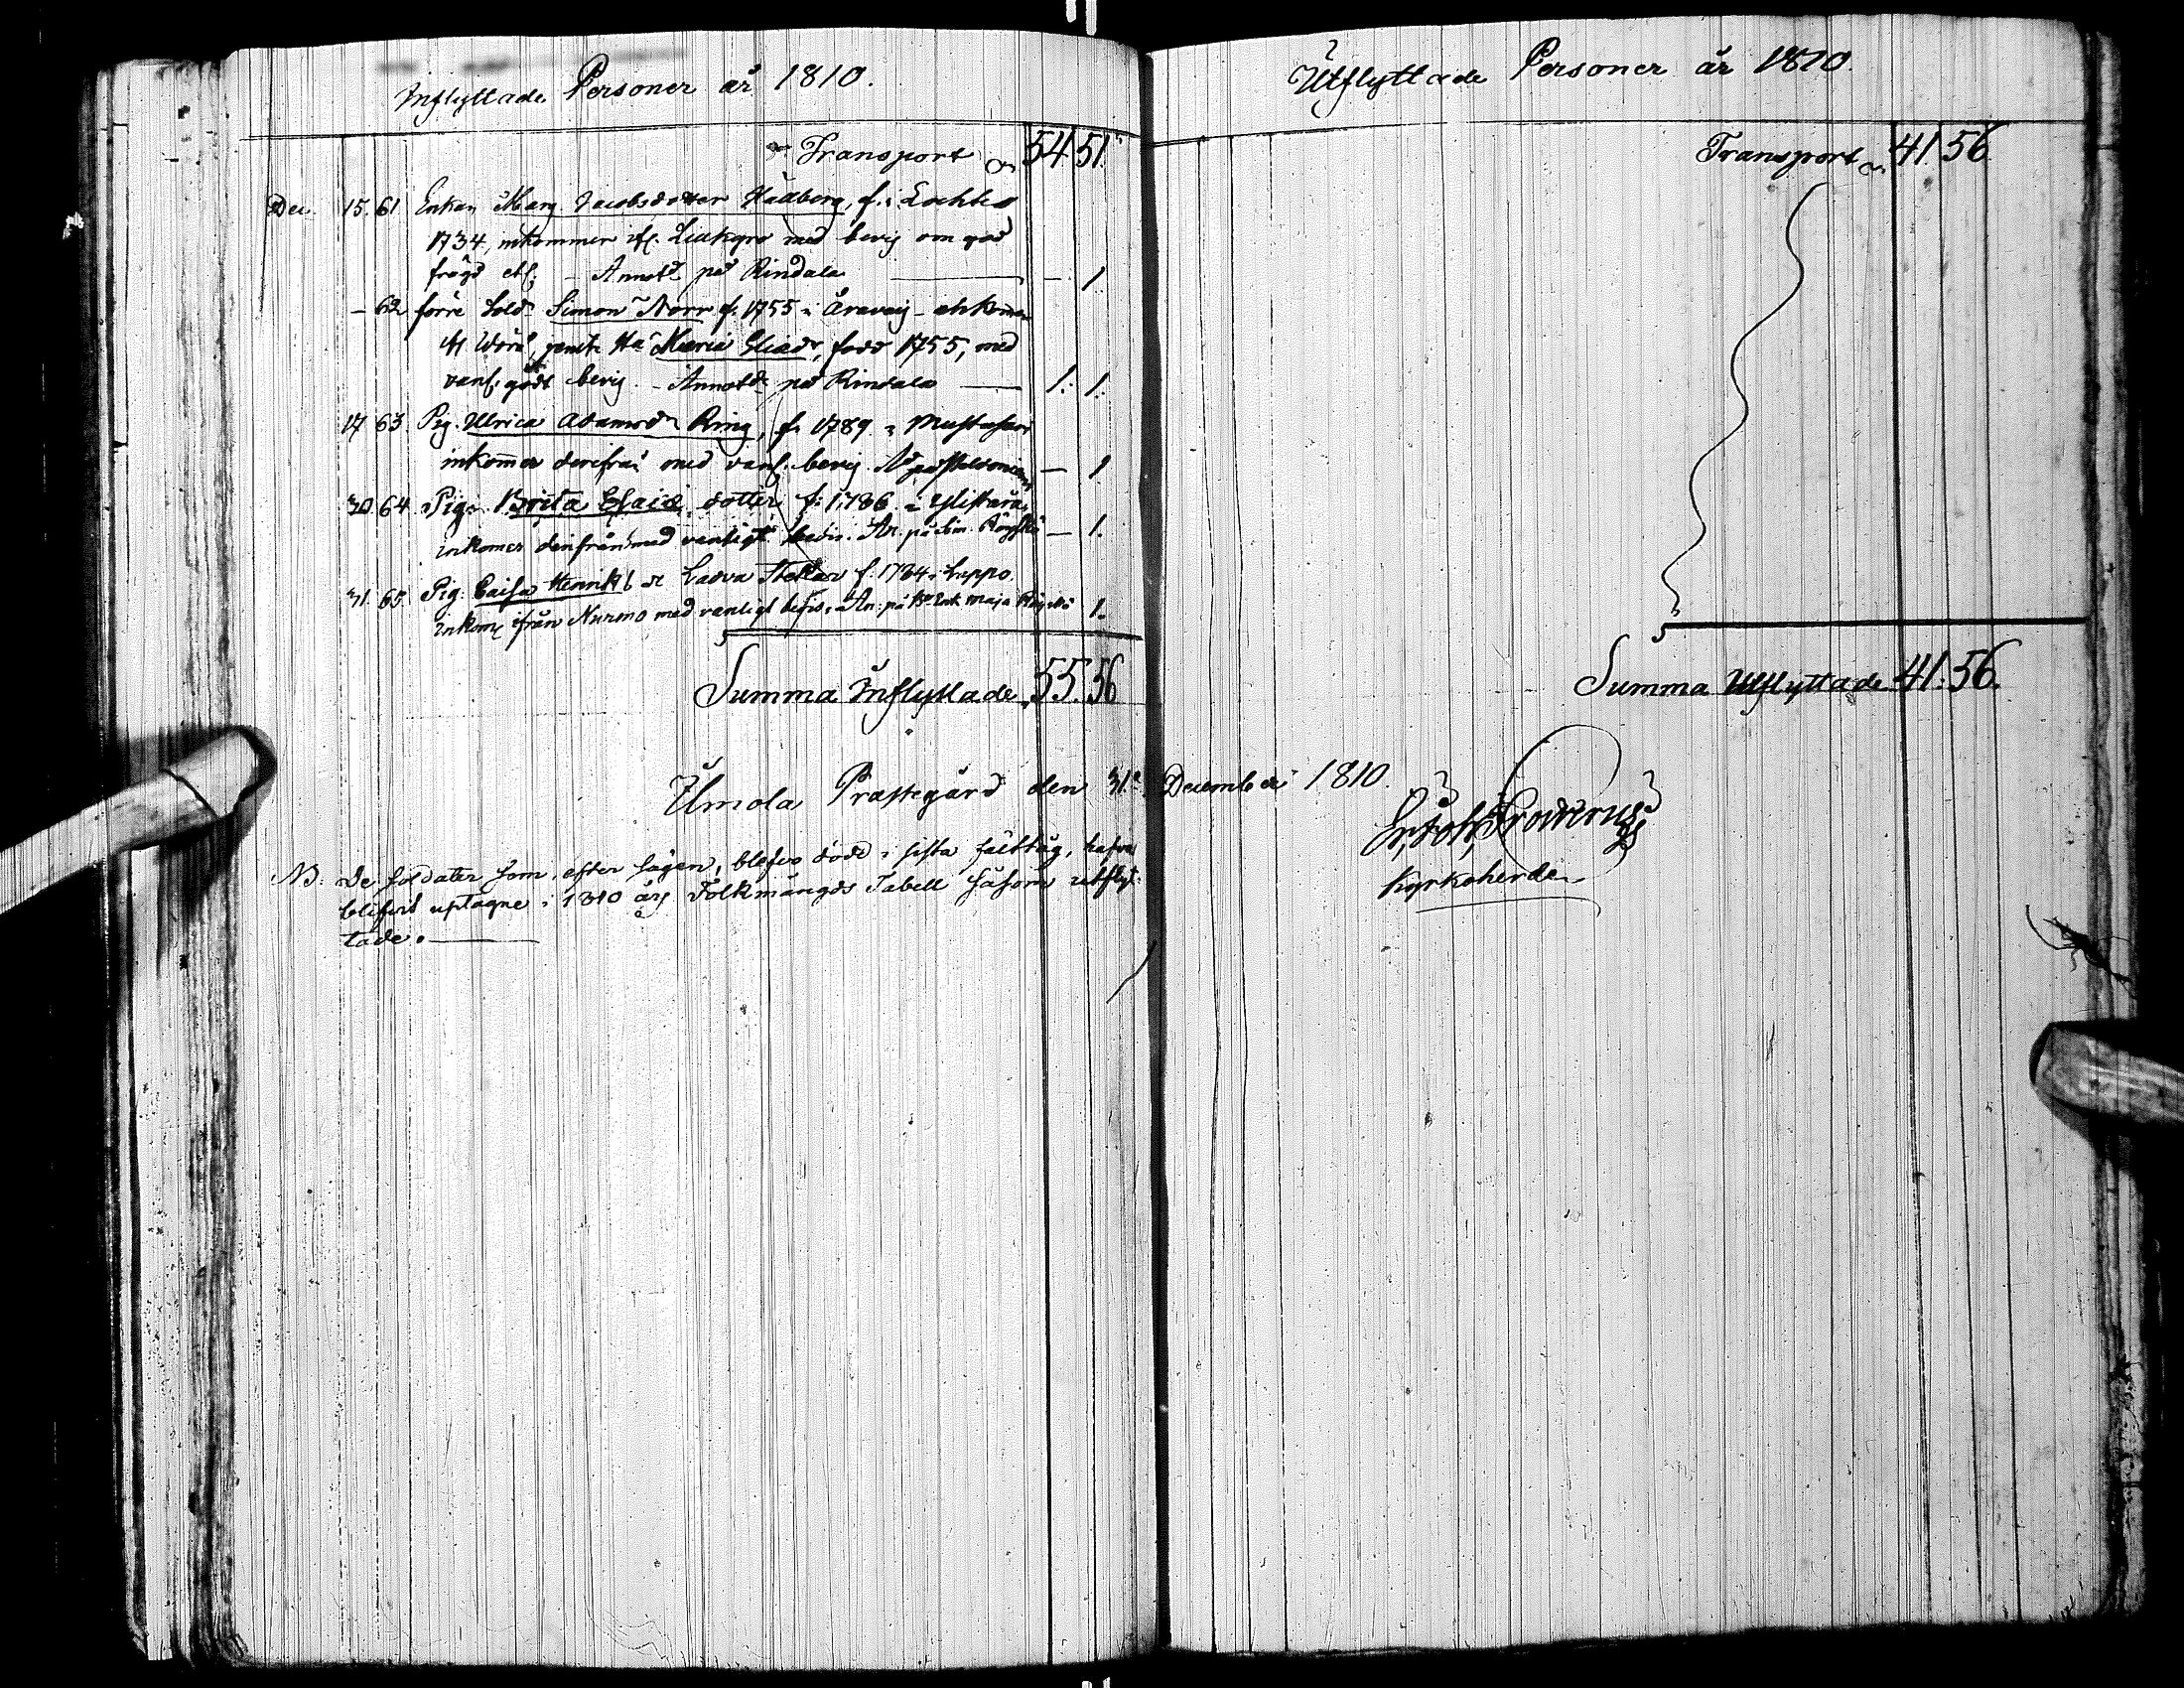 Inflyttade Personer år 1810.
Transport 54 51.
Dec. 15. 61 Enkan Marg. Jacobsdotter Hadberg, f. i Lochteå
1734, inkommer med bevis om god
frägd etc. - Annot. på Rindala — 1.
- 62 förre Sold. Simon Norr f. 1755 i
Maria född 1755, med
vanl. godt bevis. - Annot. på Rindala — 1. 1.
17 63 Pig. Ulrica Adamsdr Ring, f. 1789 i Mustasaari
inkommer derifrån med vanl. bevis. — 1
30. 64. Pig. Brita Esaiæ dotter, f: 1786 i Ylistaro
inkomer derifrån med vanligt bevis. An. på — 1.
31. 65. Pig: Caisa Henriksdr f. 1784 i Lappo.
inkom. ifrån Nurmo med vanligt bevis. An: på Enk. Maja 1.
Summa Inflyttade 55. 56
Utflyttade Personer år 1810
Transport 41 56
Summa Utflyttade 41. 56.
Ilmola Prästegård den 31. December 1810.
Kyrkoherde
NB. De soldater som, efter sägen, blefvo döde i sista fälttåg, hafva
blifvit uptagne i 1810 års Folkmängds Tabell såsom utflyt-
tade.